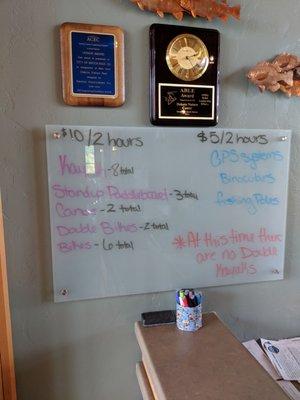 ACEC
ABLE
Award
$10/2 hours
Kayaks - 8 total
Standup Paddleboard - 3 total
Canoe - 2 total
Double Bikes - 2 total
Bikes - 6 total
$5/2 hours
GPS systems
Binoculars
fishing Poles
*At this time there
are no Double
Kayaks